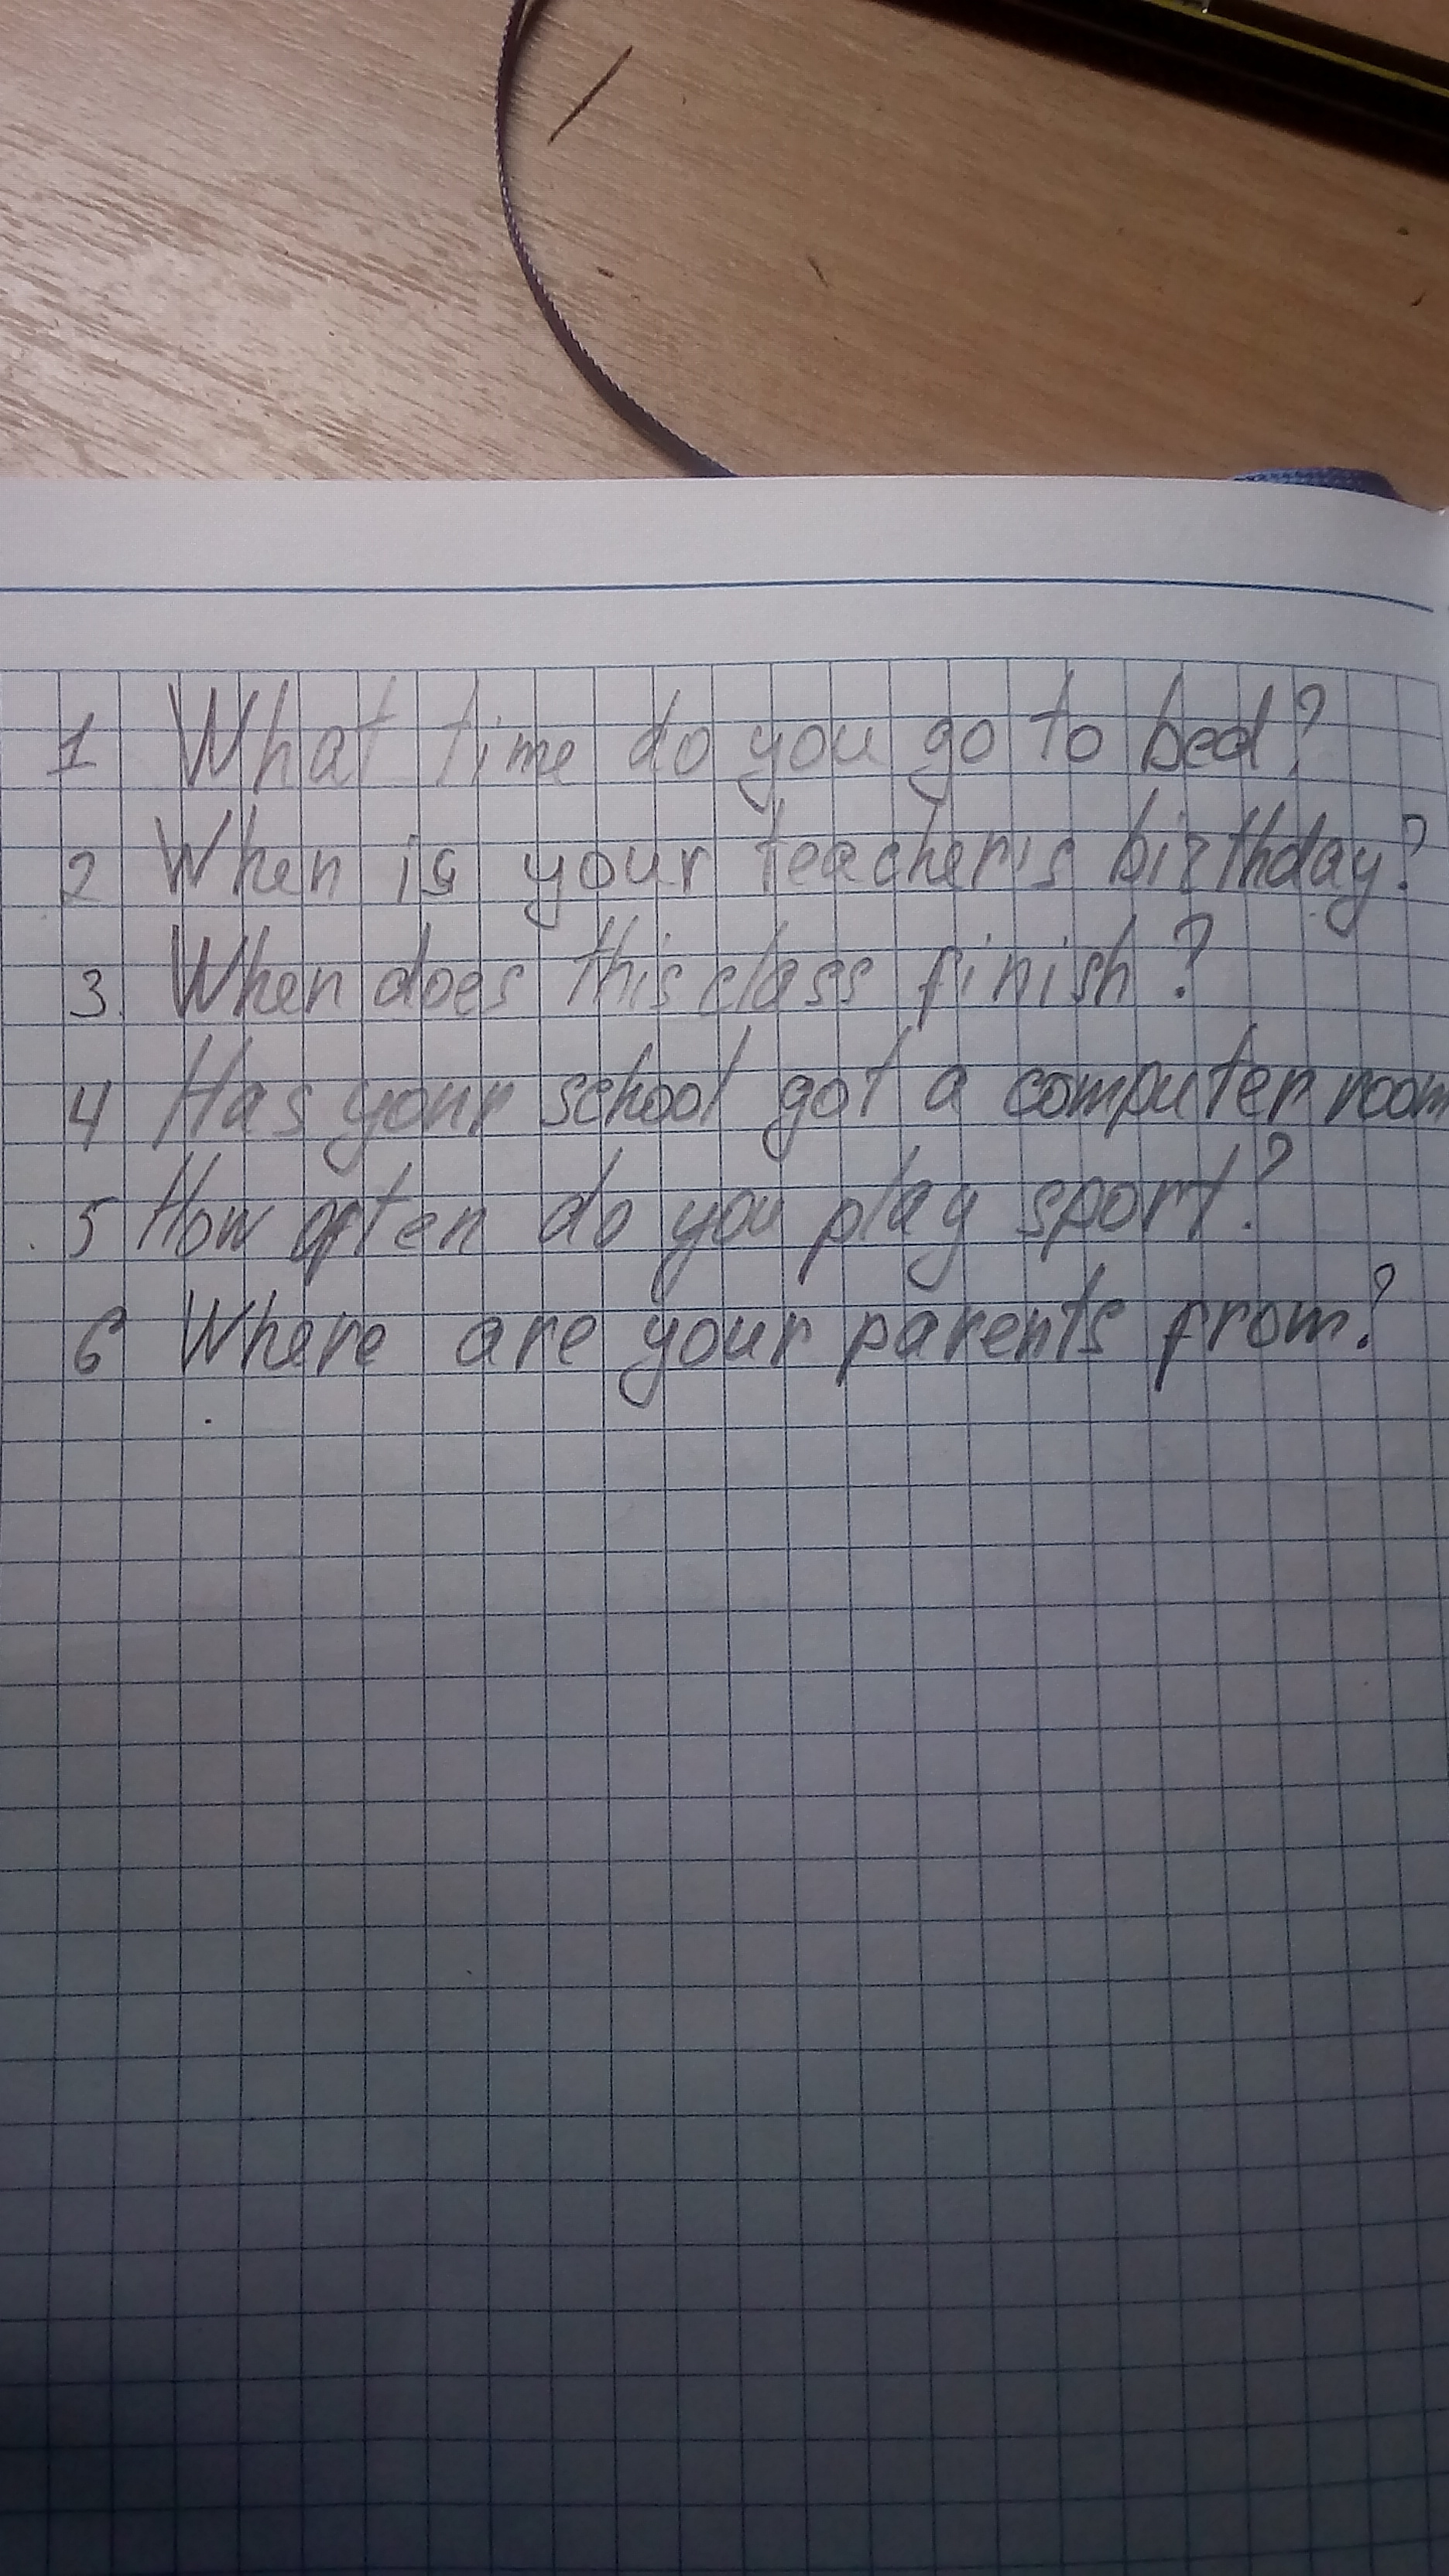 1 What time do you go to bed?
2 When is your teacher's birthday?
3. When does this class finish?
4 Has your school got a computer room
5 How often do you play sport?
6 Where are your parents from?